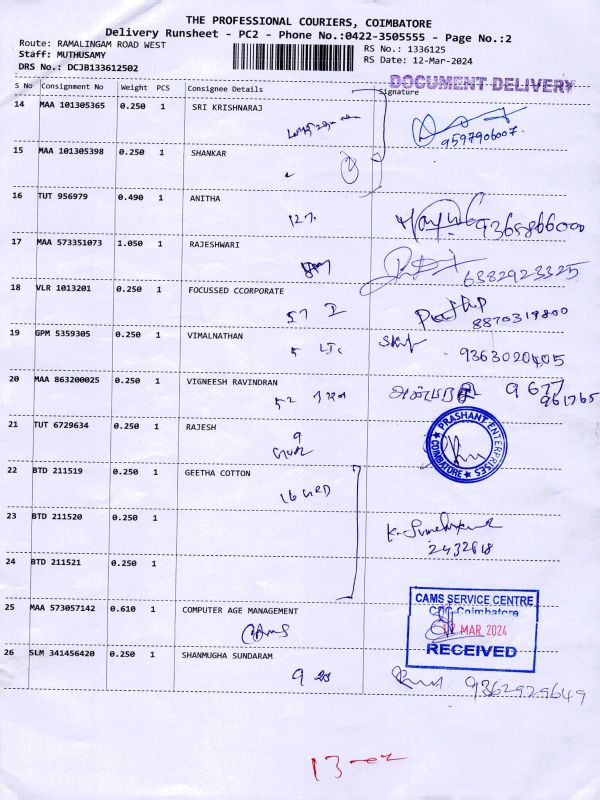 THE PROFESSIONAL COURIERS, COIMBATORE
Delivery Runsheet - PC2 - Phone No.:0422-3505555 - Page No.:2
Route: RAMALINGAM ROAD WEST
RS No.: 1336125
Staff: MUTHUSAMY
RS Date: 12-Mar-2024
DRS No.: DCJB133612502
DOCUMENT DELIVERY
S No Consignment No Weight PCS Consignee Details Signature
14 MAA 101305365 0.250 1 SRI KRISHNARAJ
9597906007
15 MAA 101305398 0.250 1 SHANKAR
16 TUT 956979 0.490 1 ANITHA
9365866000
17 MAA 573351073 1.050 1 RAJESHWARI
6382923325
18 VLR 1013201 0.250 1 FOCUSSED CCORPORATE
8870319800
19 GPM 5359305 0.250 1 VIMALNATHAN
9363020405
20 MAA 863200025 0.250 1 VIGNEESH RAVINDRAN
9677
961765
21 TUT 6729634 0.250 1 RAJESH
9
PRASHANT ENTERPRISES
COIMBATORE
22 BTD 211519 0.250 1 GEETHA COTTON
16
23 BTD 211520 0.250 1
2432818
24 BTD 211521 0.250 1
25 MAA 573057142 0.610 1 COMPUTER AGE MANAGEMENT
CAMS
CAMS SERVICE CENTRE
Coimbatore
12 MAR 2024
RECEIVED
26 SLM 341456420 0.250 1 SHANMUGHA SUNDARAM
9362929649
13